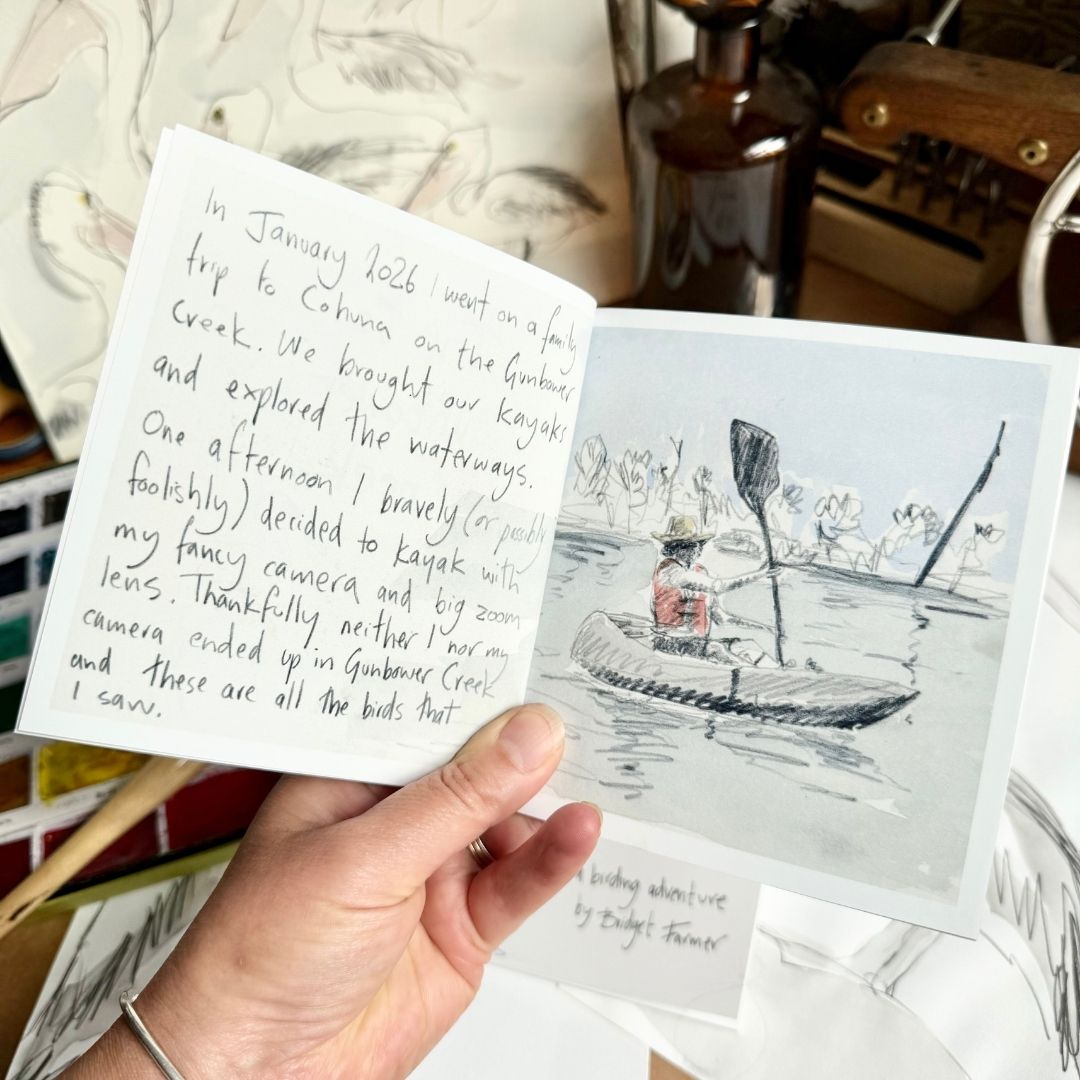 In January 2026 I went on a family
trip to Cohuna on the Gunbower
Creek. We brought our kayaks
and explored the waterways.
One afternoon I bravely (or possibly
foolishly) decided to kayak with
my fancy camera and big zoom
lens. Thankfully neither I nor my
camera ended up in Gunbower Creek
and these are all the birds that
I saw.
a birding adventure
by Bridget Farmer